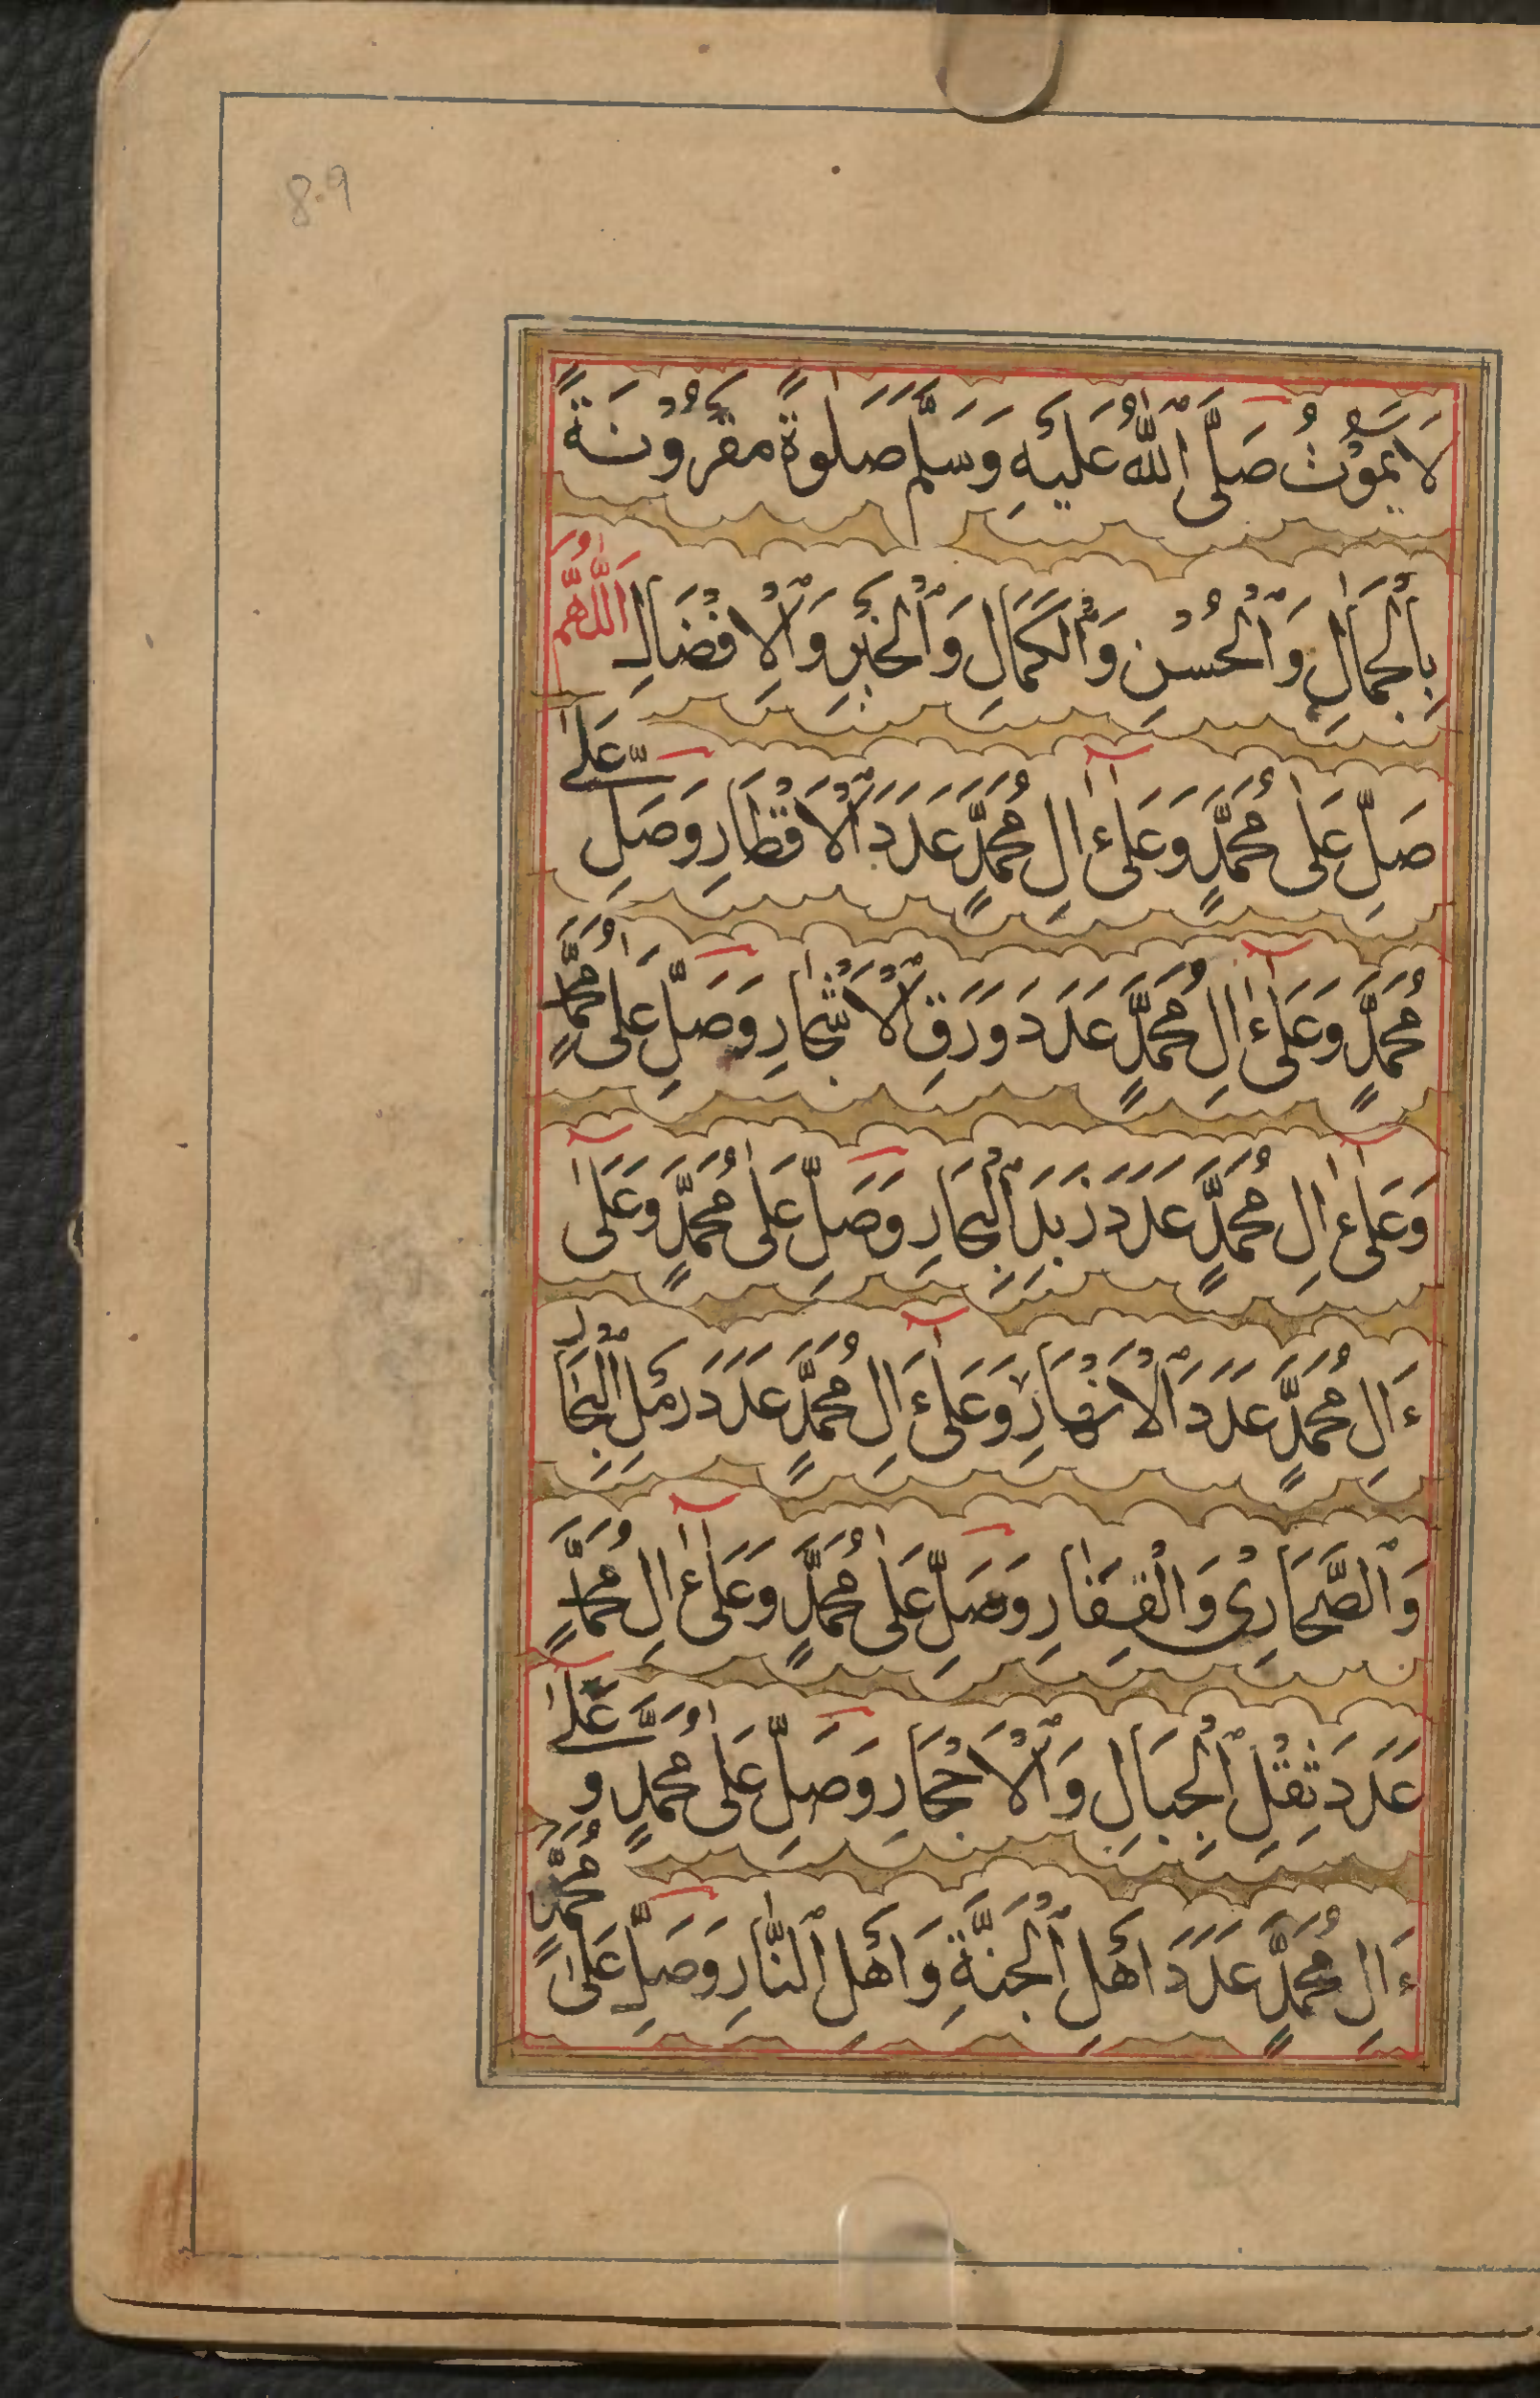 8.9
لَا يَمُوْتُ صَلَّى ٱللّٰهُ عَلَيْهِ وَسَلَّمَ صَلٰوةً مَقْرُوْنَةً
بِٱلْجَمَالِ وَٱلْحُسْنِ وَٱلْكَمَالِ وَٱلْخَيْرِ وَٱلْاِفْضَالِ اَللّٰهُمَّ
صَلِّ عَلٰى مُحَمَّدٍ وَعَلٰىٓ ءَالِ مُحَمَّدٍ عَدَدَ ٱلْاَقْطَارِ وَصَلِّ عَلٰى
مُحَمَّدٍ وَعَلٰىٓ ءَالِ مُحَمَّدٍ عَدَدَ وَرَقِ ٱلْاَشْجَارِ وَصَلِّ عَلٰى مُحَمَّدٍ
وَعَلٰىٓ ءَالِ مُحَمَّدٍ عَدَدَ زَبَدِ ٱلْبِحَارِ وَصَلِّ عَلٰى مُحَمَّدٍ وَعَلٰىٓ
ءَالِ مُحَمَّدٍ عَدَدَ ٱلْاَنْهَارِ وَعَلٰىٓ ءَالِ مُحَمَّدٍ عَدَدَ رَمْلِ ٱلْبِحَارِ
وَٱلصَّحَارِىْ وَالْقِفَارِ وَصَلِّ عَلٰى مُحَمَّدٍ وَعَلٰىٓ ءَالِ مُحَمَّدٍ
عَدَدَ ثِقْلِ ٱلْجِبَالِ وَٱلْاَحْجَارِ وَصَلِّ عَلٰى مُحَمَّدٍ وَعَلٰىٓ
ءَالِ مُحَمَّدٍ عَدَدَ اَهْلِ ٱلْجَنَّةِ وَاَهْلِ ٱلنَّارِ وَصَلِّ عَلٰى مُحَمَّدٍ